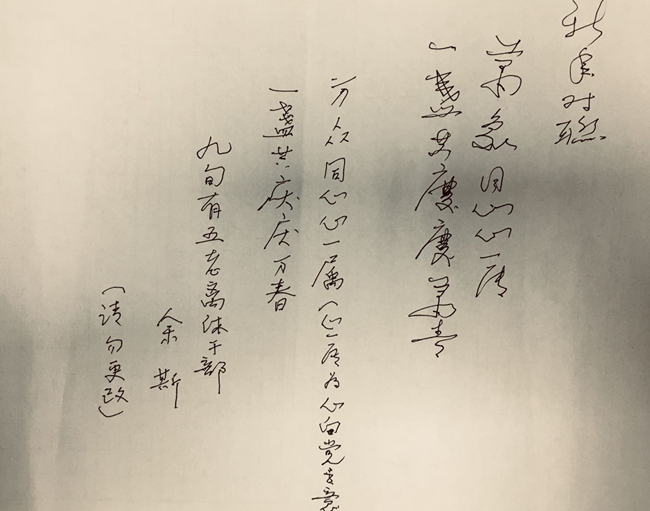 新年对联
万众同心心一属
一盏共慶慶萬春
万众同心心一属(心一属为心向党之意
一盏共庆庆万春
九旬有五老离休干部
余斯
(请勿更改)